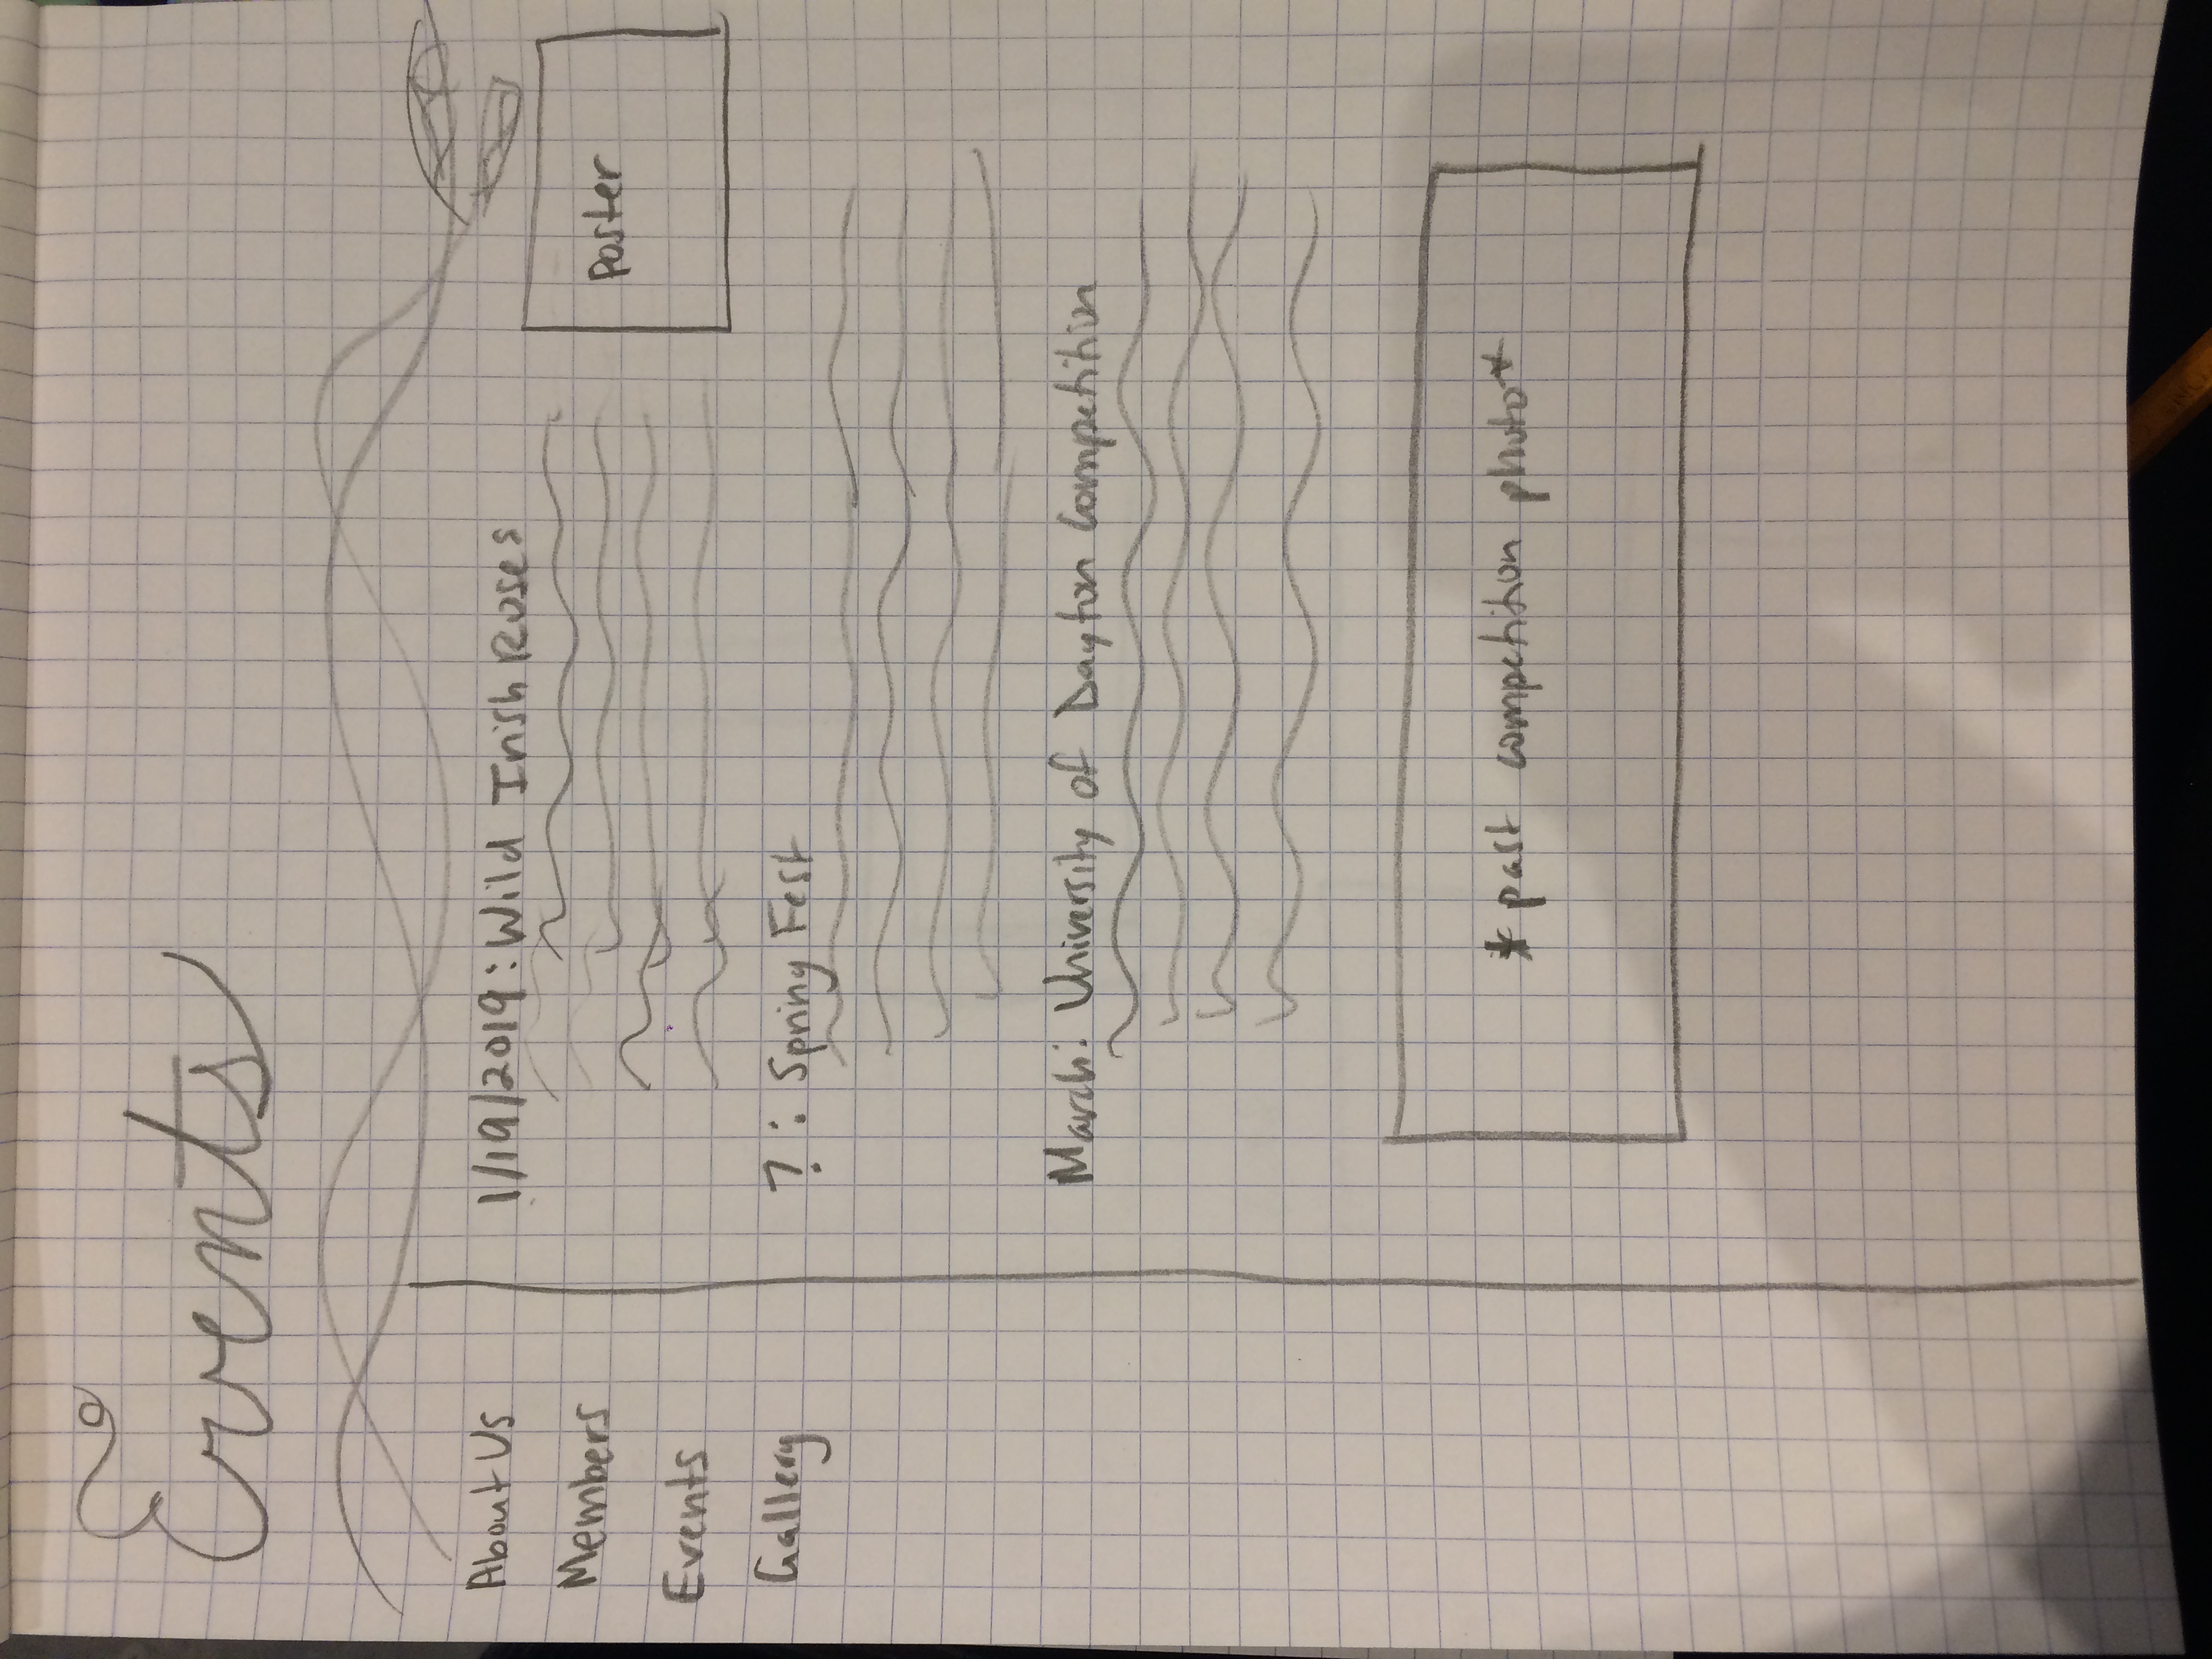 Events
About Us
Members
Events
Gallery
1/19/2019: Wild Irish Roses
Poster
? : Spring Fest
March: University of Dayton Competition
* past competition photo*